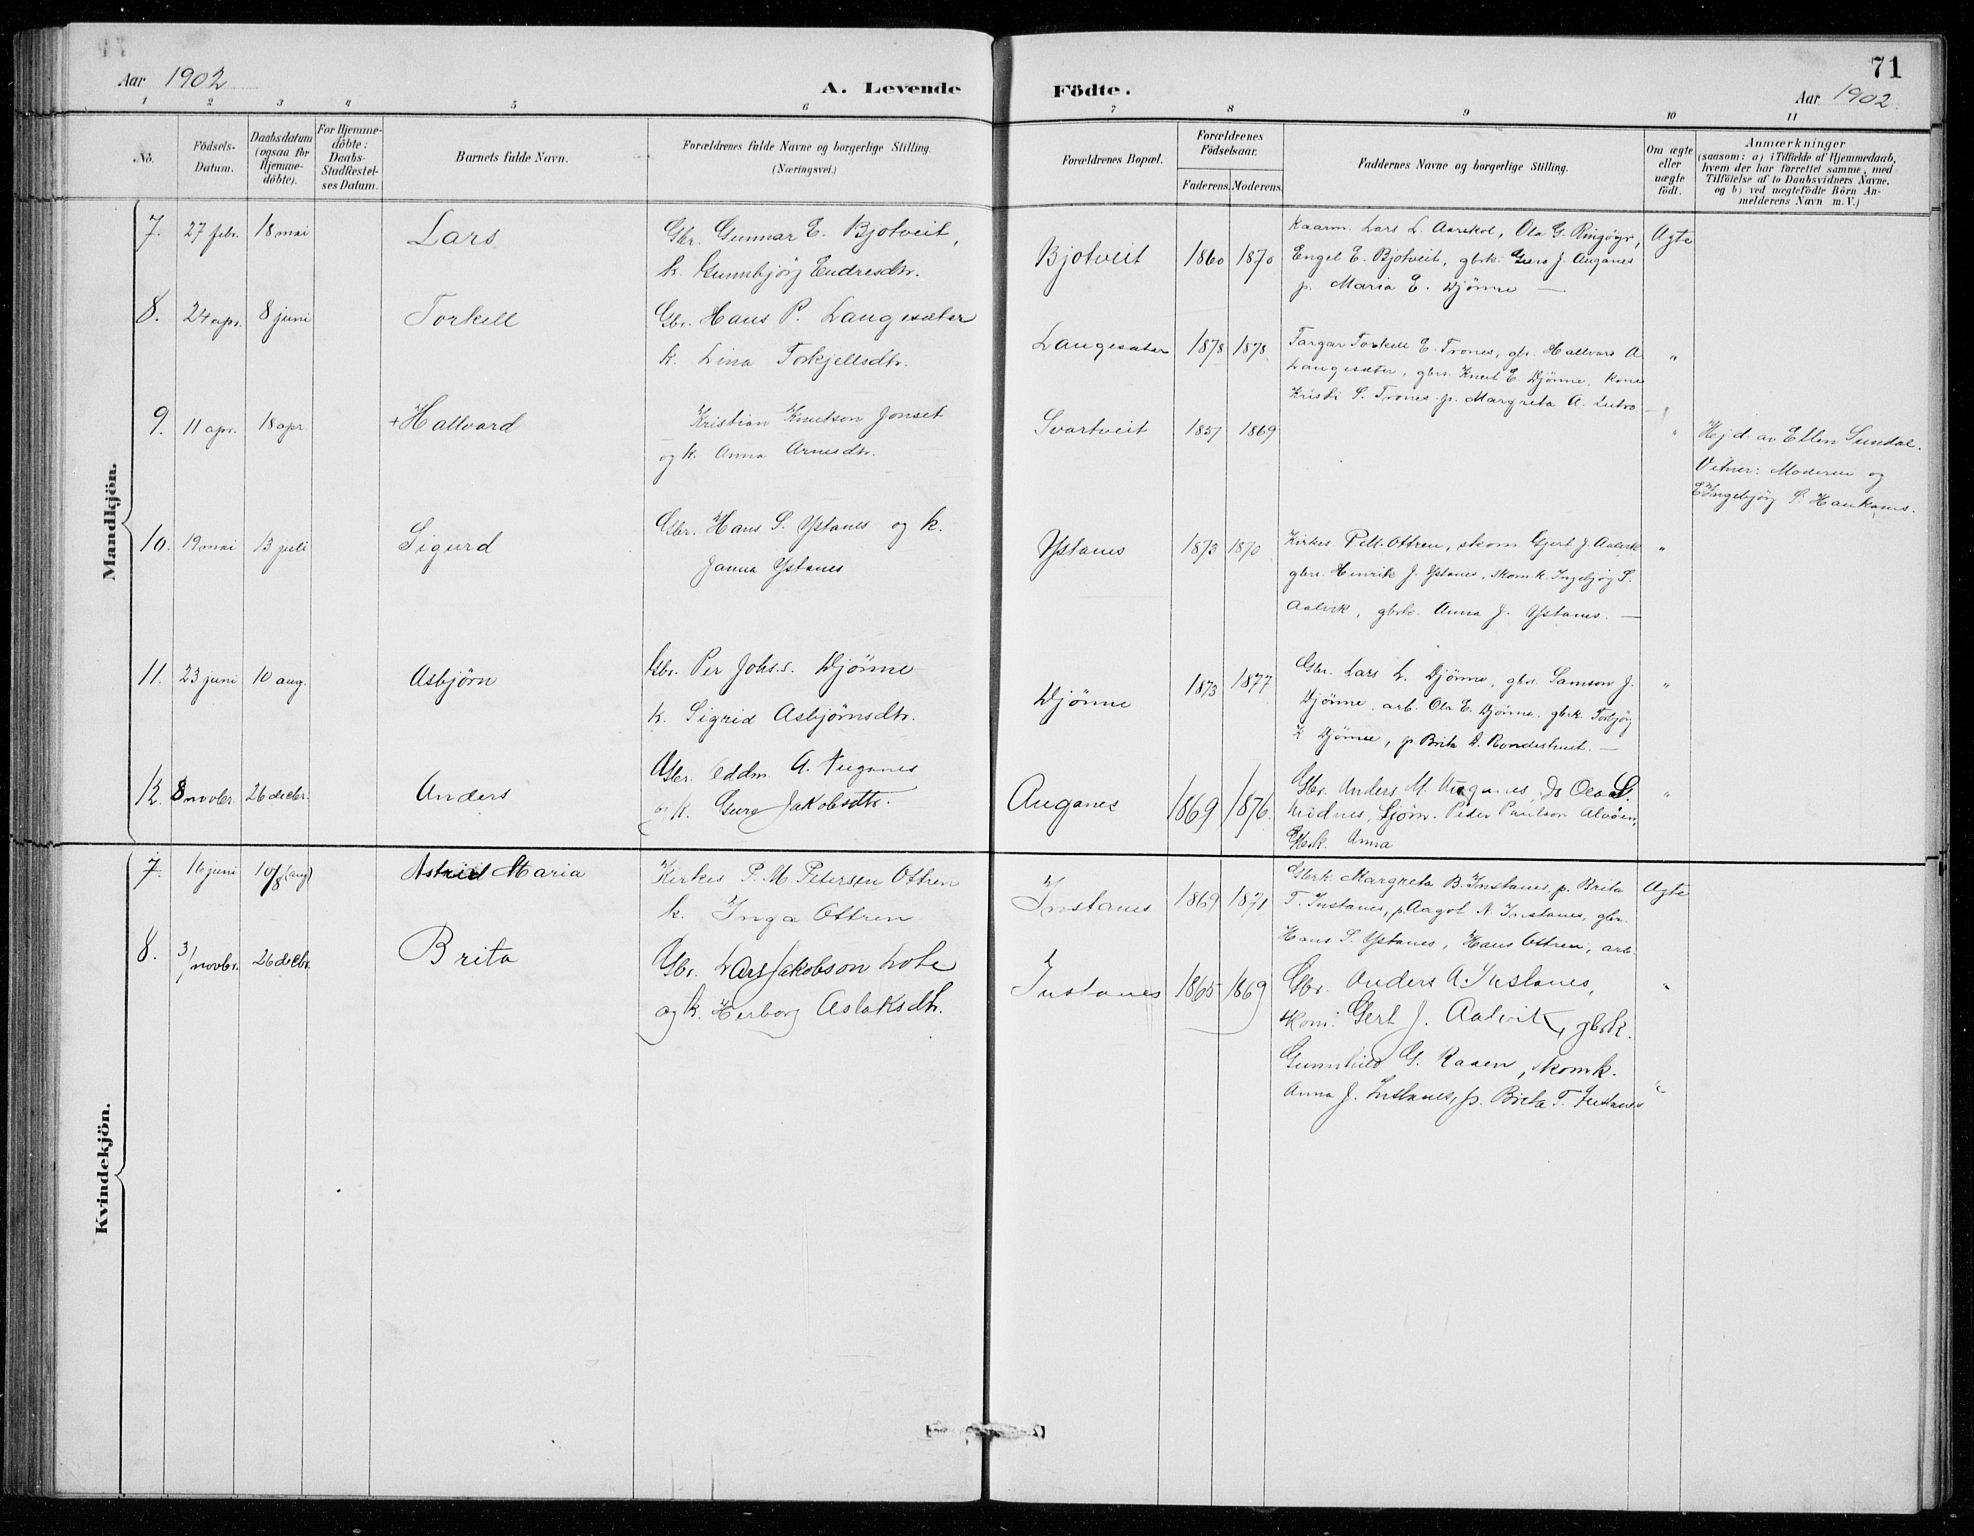 71
Aar 1902
A. Levende Födte.
Aar 1902.
1 2 3 4 5 6 7 8 9 10 11
No.
Födsels-
Datum.
Daabsdatum
(ogsaa for
Hjemme-
döbte).
For Hjemme-
döbte:
Daabs-
Stadfestel-
ses Datum.
Barnets fulde Navn.
Forældrenes fulde Navne og borgerlige Stilling.
(Næringsvei.)
Forældrenes Bopæl.
Forældrenes
Födselsaar.
Faderens. Moderens.
Faddernes Navne og borgerlige Stilling.
Om ægte
eller
uægte
födt.
Anmærkninger
(saasom: a) i Tilfælde af Hjemmedaab,
hvem der har forrettet samme, med
Tilföielse af to Daabsvidners Navne,
og b) ved uægtefödte Börn An-
melderens Navn m. V.)
Mandkjön.
7. 27 febr. 18 mai Lars
Gbr. Gunnar E. Bjotveit,
k. Gunnbjörg Endresdtr.
Bjotveit 1860 1870
Kaarm. Lars L. Aarekol, Ola G. Ringøyr,
Engel E. Bjotveit, gbrk. Guro J. Auganes
p. Maria E. Djønne —
Ægte
8. 24 apr. 8 juni Torkell
Gbr. Hans P. Langesæter
k. Lina Torkjellsdtr.
Langesæter 1878 1878.
Torkell E. Trones, gbr. Hallvard A
Langesæter, gbrs. Knut E. Djønne, Kone
Kristi S. Trones, p. Margreta A. Lutro —
"
9. 11 apr. 18 apr. + Hallvard
Kristian Knutson Jonset
og k. Anna Arnesdtr.
Svartveit 1857 1869
"
Hejd. av Ellen Sundal.
Vitner: Moderen og
Ingebjörg S. Haukanes.
10. 19 mai 13 juli Sigurd
Gbr. Hans S. Ystanes og k.
Janna Ystanes
Ystanes 1873 1870
Kirkes. P. M. Ottren, skom. Gjert J. Aalvik
gbrs. Henrik J. Ystanes, skomk. Ingebjøg S.
Aalvik, gbrk. Anna J. Ystanes. —
"
11. 23 juni 10 aug. Asbjørn
Gbr. Per Johs.s. Djønne
k. Sigrid Asbjørnsdtr.
Djønne 1873 1877
Gbr. Lars L. Djønne, gbr. Samson J.
Djønne, arb. Ola E. Djønne, gbrk. Torbjøg
K Djønne, p. Brita A. Rondestveit. —
"
12. 8 novbr. 26 decbr. Anders
Gbr. Oddm. A. Auganes
og k. Guro Jakobsdtr.
Auganes 1869 1876.
Gbr. Anders M. Auganes, do Ola S.
Midnes, Sjøm. Peder Paulson Alvøen,
Gbrk. Anna
"
Kvindekjön.
7. 16 juni 10/8 (aug) Astrid Maria
Kirkes P. M. Petersen Ottren
k. Inga Ottren
Instanes 1869 1871
Gbrk. Margreta B. Instanes, p. Brita
T. Instanes, p. Aagot N. Instanes, gbr.
Hans S. Ystanes, Hans Ottren, arb.
Ægte
8. 3/novbr. 26 decbr. Brita
Gbr. Lars Jakobson Lote
og k. Herborg Aslaksdtr.
Instanes 1865 1869
Gbr. Anders A. Instanes,
skom. Gert J. Aalvik, gbrk.
Gunnhild G. Raaen, skomk.
Anna J. Instanes, p. Brita T. Instanes
"
"